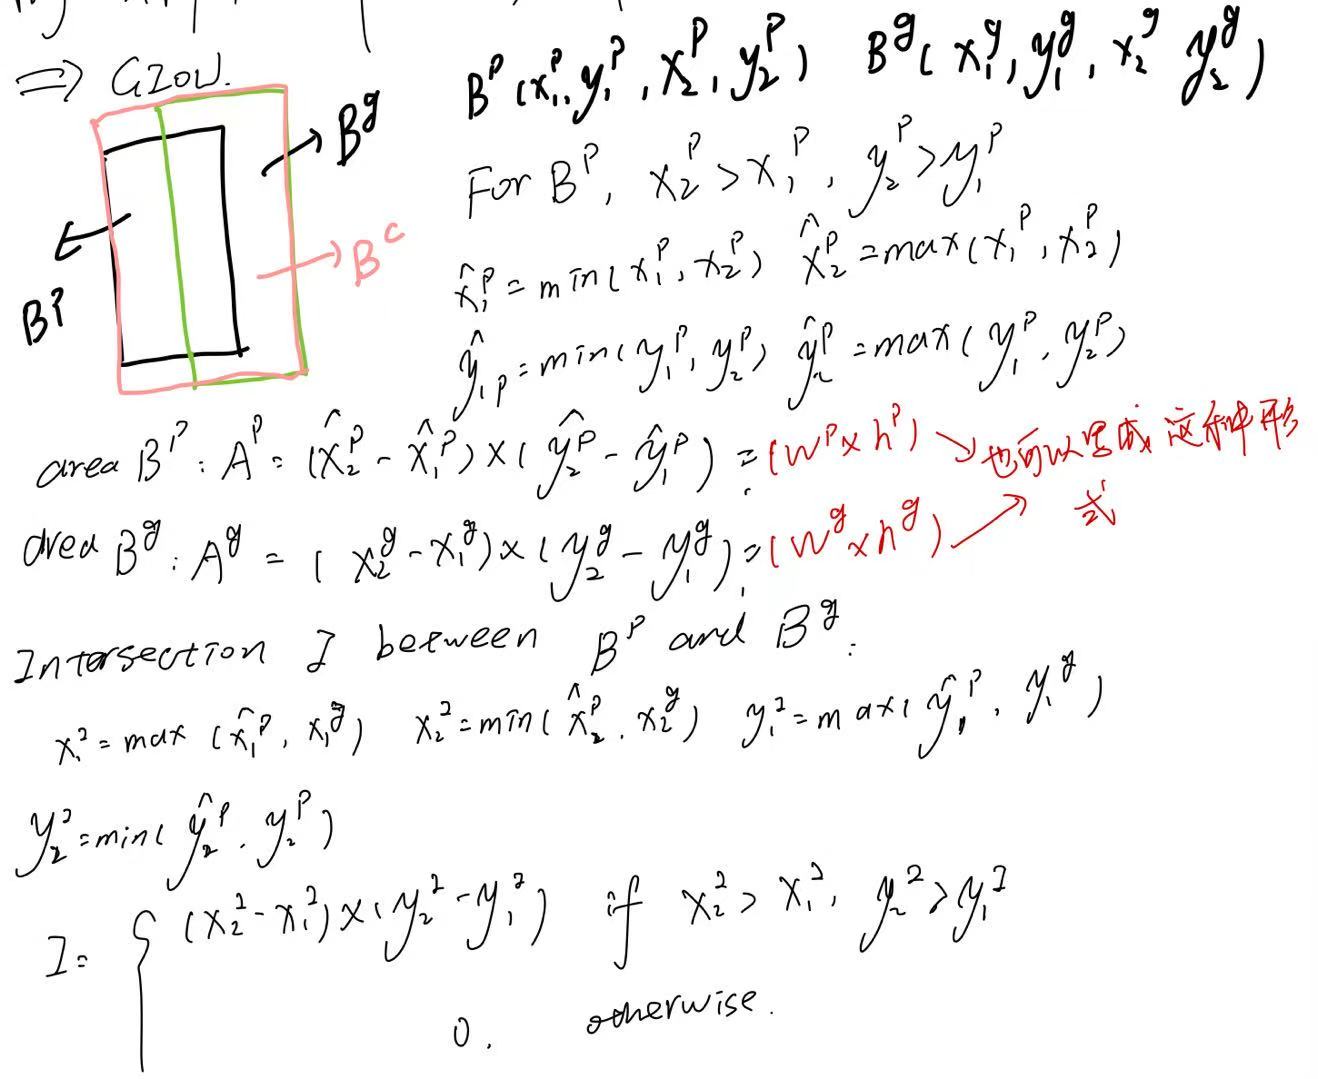 ⇒ GIoU.
B^p (x_1^p, y_1^p, x_2^p, y_2^p)   B^g ( x_1^g, y_1^g, x_2^g y_2^g)
B^g
For B^p, x_2^p > x_1^p, y_2^p > y_1^p
B^c
x̂_1^p = min( x_1^p, x_2^p)   x̂_2^p = max( x_1^p, x_2^p)
B^p
ŷ_1^p = min( y_1^p, y_2^p)   ŷ_2^p = max( y_1^p, y_2^p)
area B^p : A^p = (x̂_2^p - x̂_1^p) × ( ŷ_2^p - ŷ_1^p) = (w^p × h^p) → 也可以写成这种形式
area B^g : A^g = ( x_2^g - x_1^g) × ( y_2^g - y_1^g) = (w^g × h^g)
Intersection I between B^p and B^g :
x_1^I = max (x̂_1^p, x_1^g)   x_2^I = min( x̂_2^p, x_2^g)   y_1^I = max( ŷ_1^p, y_1^g)
y_2^I = min( ŷ_2^p, y_2^p)
I = { (x_2^I - x_1^I) × ( y_2^I - y_1^I)   if x_2^I > x_1^I, y_2^I > y_1^I
0,   otherwise.